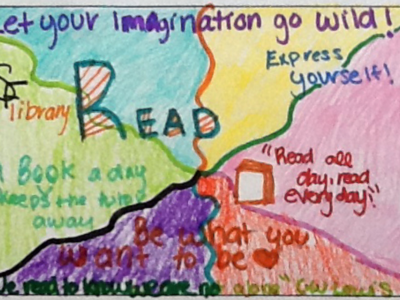 Let your imagination go wild!
Express yourself!
library
READ
A Book a day
keeps the tutor
away
"Read all
day, read
every day!"
Be what you
want to be
We read to know we are not alone" CS Lewis